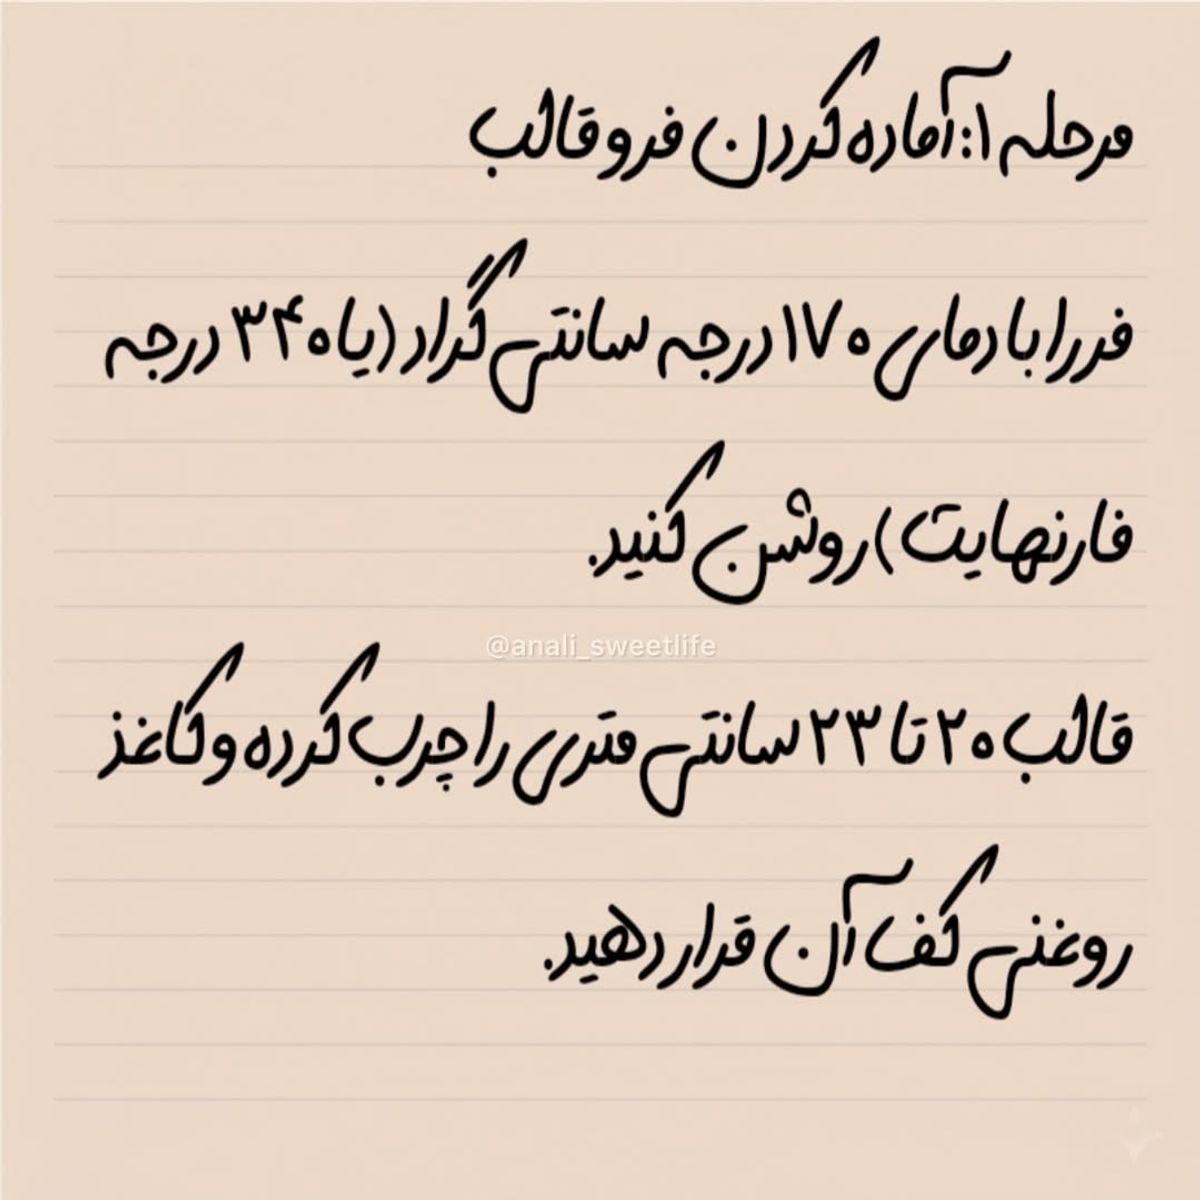 مرحله ۱: آماده کردن فر و قالب
فر را با دمای ۱۷۰ درجه سانتی گراد (یا ۳۴۰ درجه
فارنهایت) روشن کنید.
@anali_sweetlife
قالب ۲۰ تا ۲۳ سانتی متری را چرب کرده و کاغذ
روغنی کف آن قرار دهید.